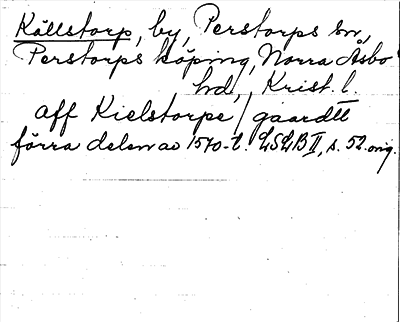 Källstorp, by, Perstorps sn,
Perstorps köping, Norra Åsbo
hd, Krist. l.
aff Kielstorpe / gaardtt
förra delen av 1570-t. LSLB II, s. 52. orig.